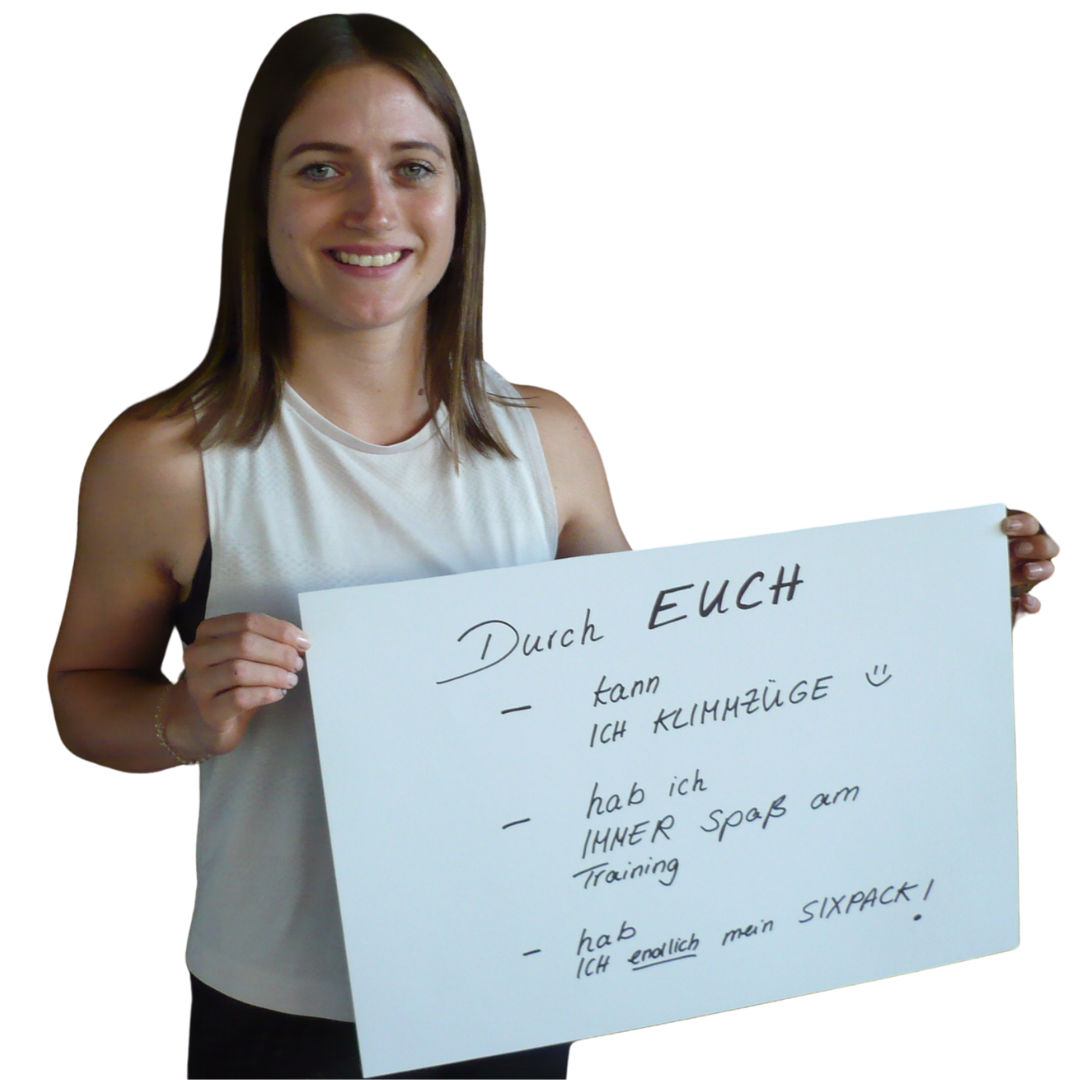 Durch EUCH
– kann
ICH KLIMMZÜGE
– hab ich
IMMER Spaß am
Training
– hab
ICH endlich mein SIXPACK!